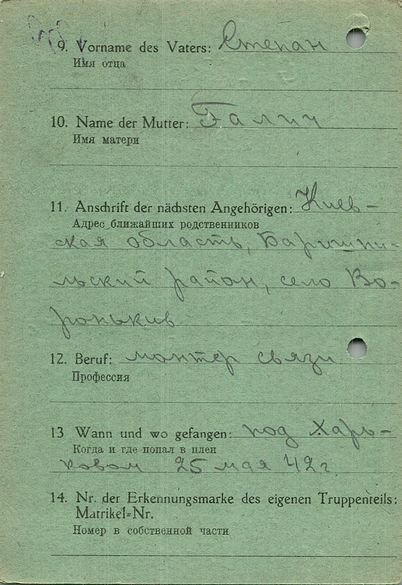 9. Vorname des Vaters: Степан
Имя отца
10. Name der Mutter: Галич
Имя матери
11. Anschrift der nächsten Angehörigen: Киев-
Адрес ближайших родственников
ская область, Баришпи-
льский район, село Во-
ронькив
12. Beruf: монтер связи
Профессия
13 Wann und wo gefangen: под Харь-
Когда и где попал в плен
ковом 25 мая 42 г.
14. Nr. der Erkennungsmarke des eigenen Truppenteils:
Matrikel=Nr.
Номер в собственной части